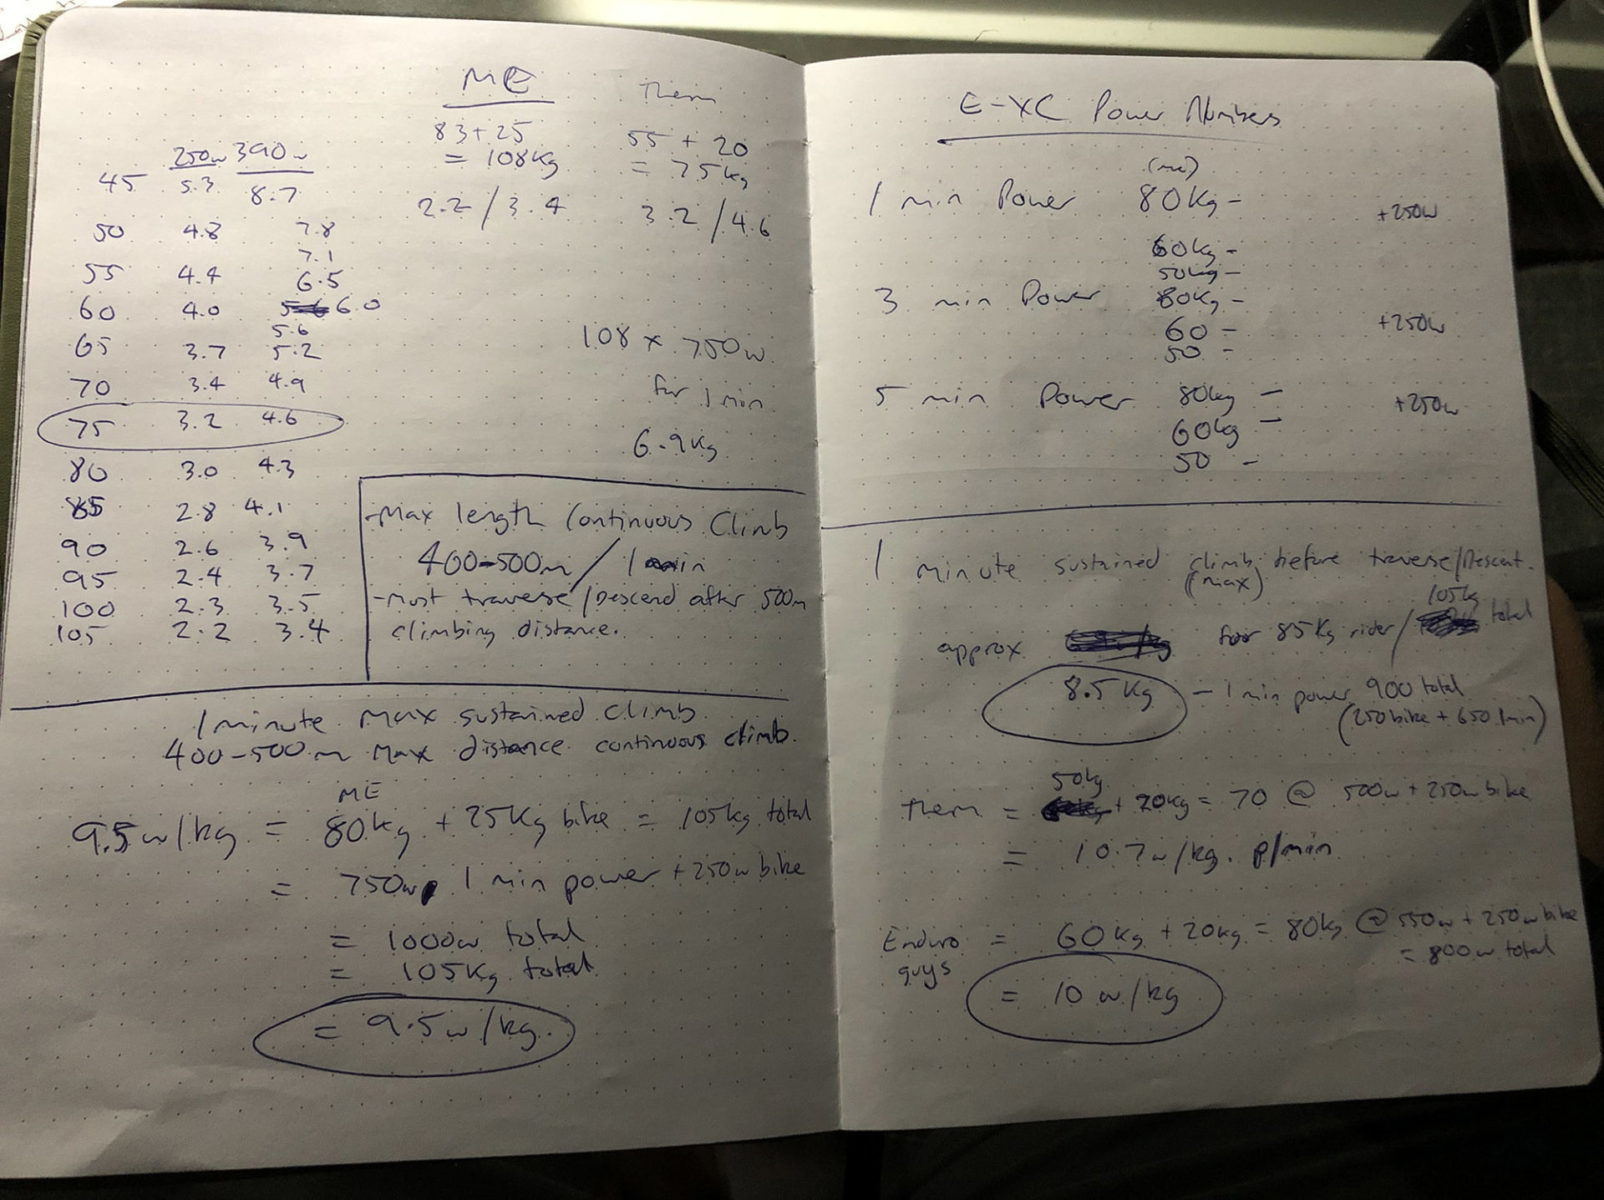 ME
Them
83+25
= 108kg
55 + 20
= 75kg
2.2/3.4
3.2/4.6
250w 390w
45 5.3 8.7
50 4.8 7.8
7.1
55 4.4 6.5
60 4.0 6.0
5.6
65 3.7 5.2
70 3.4 4.9
75 3.2 4.6
80 3.0 4.3
85 2.8 4.1
90 2.6 3.9
95 2.4 3.7
100 2.3 3.5
105 2.2 3.4
108 x 750w
for 1 min
6.9kg
-Max length Continuous Climb
400-500m / 1 min
-Must traverse/Descend after 500m
climbing distance.
1 minute Max sustained climb
400-500m Max distance continuous climb.
ME
9.5w/kg = 80kg + 25kg bike = 105kg total
= 750w 1 min power + 250w bike
= 1000w total
= 105kg total
= 9.5w/kg.
E-XC Power Numbers
(me)
1 min Power 80kg - +250w
60kg -
50kg -
3 min Power 80kg - +250w
60 -
50 -
5 min Power 80kg - +250w
60kg -
50 -
1 minute sustained climb before traverse/Descent.
(max)
105kg
approx for 85kg rider/ total
8.5kg - 1 min power 900 total
(250bike + 650 1min)
50kg
Them = + 20kg = 70 @ 500w + 250w bike
= 10.7w/kg. p/min
Enduro guys = 60kg + 20kg = 80kg @ 550w + 250w bike
= 800w total
= 10 w/kg